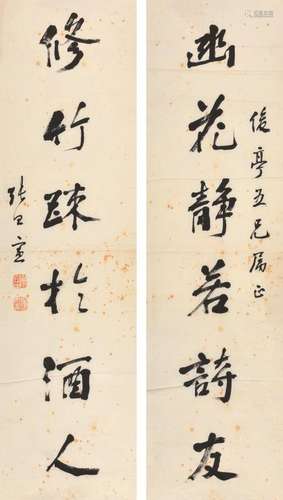 幽花靜若詩友
俊亭五兄属正
修竹疎於酒人
張